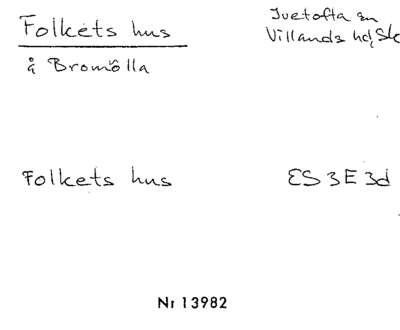 Folkets hus
Ivetofta sn
Villands hd, Sk
å Bromölla
Folkets hus
ES 3 E 3d
Nr 13982